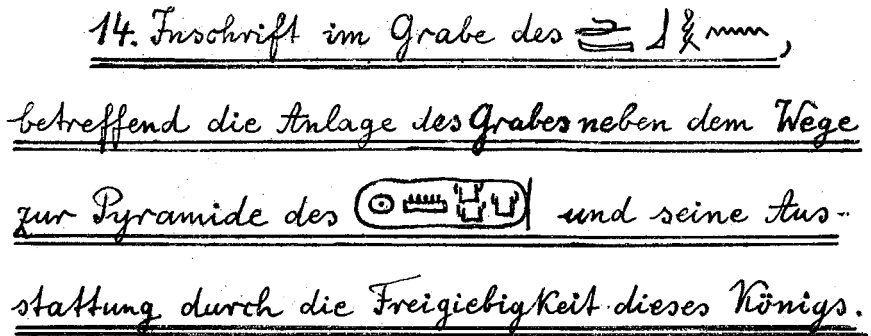 14. Inschrift im Grabe des 𓂧𓃀𓎛𓈖,
betreffend die Anlage des Grabes neben dem Wege
zur Pyramide des 𓍹𓇳𓏠𓂓𓂓𓂓𓍺 und seine Aus-
stattung durch die Freigiebigkeit dieses Königs.